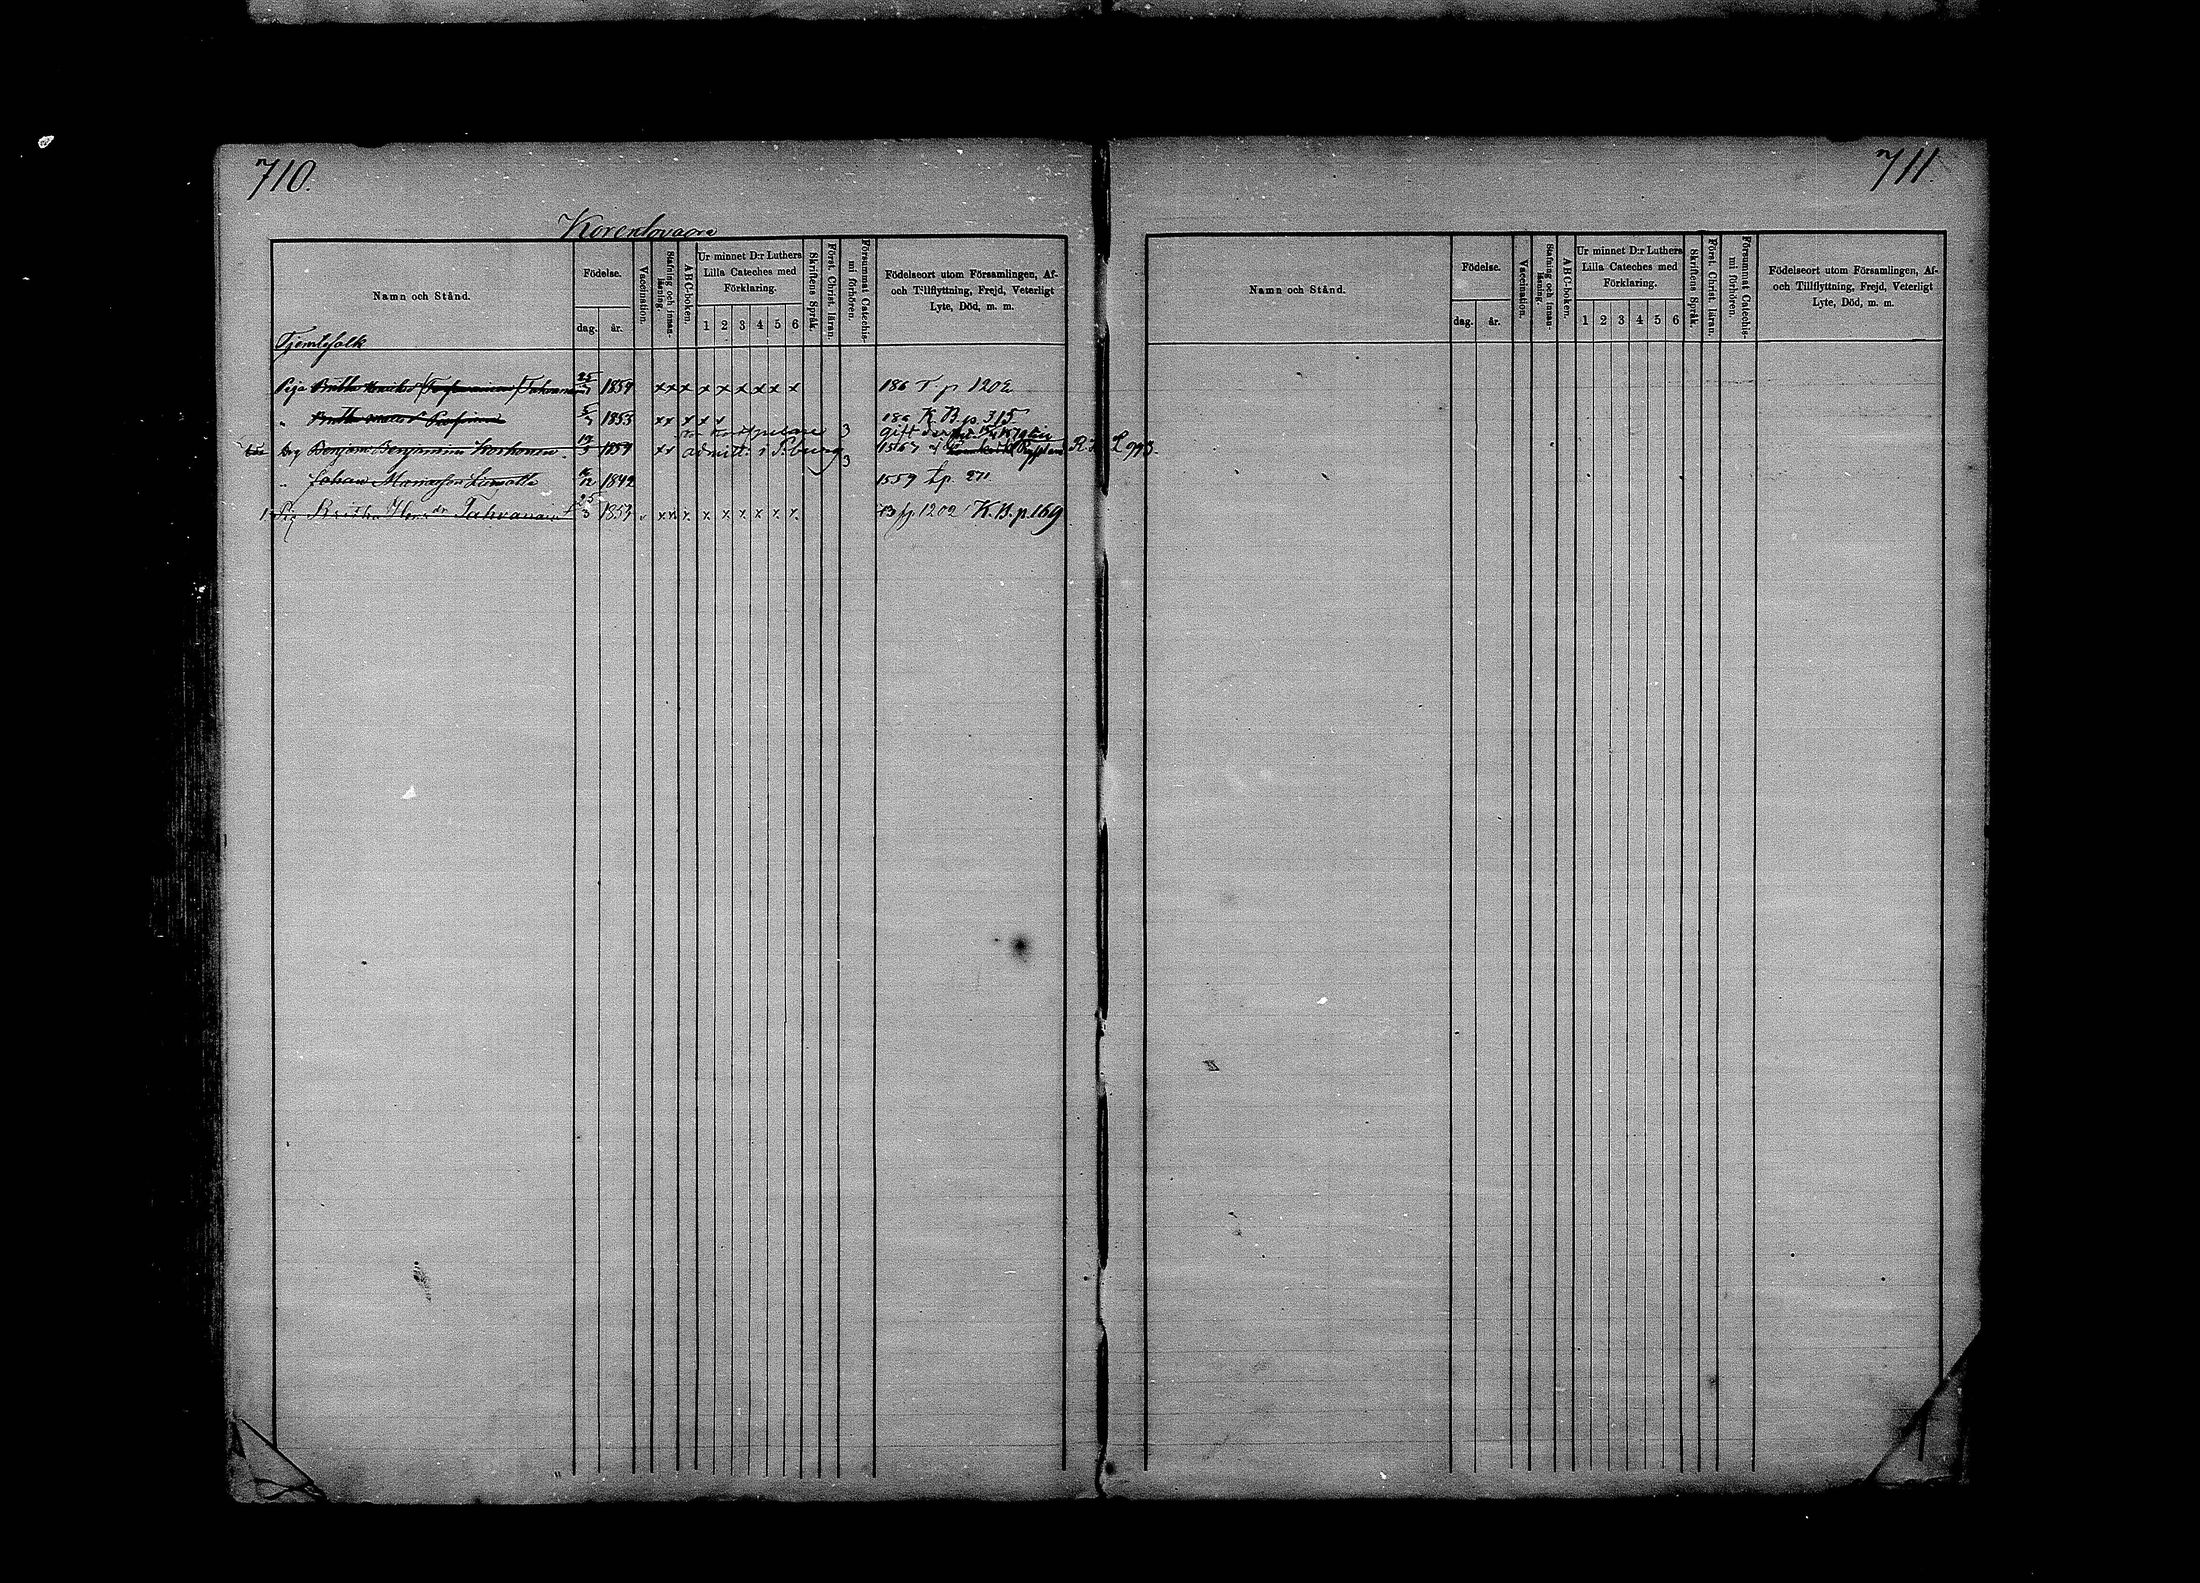 710.
Korentovaara
Namn och Stånd.
Födelse.
dag.
år.
Vaccination.
Stafning och innanläsning.
ABC-boken.
Ur minnet D:r Luthers Lilla Cateches med Förklaring.
1 2 3 4 5 6
Skriftens Språk.
Först. Christ. läran.
Försummat Catechismi förhören.
Födelseort utom Församlingen, Af- och Tillflyttning, Frejd, Veterligt Lyte, Död, m. m.
Tjenstefolk
Piga Britta 25/3 1859 x x x x x x x x x 186 T. p 1202
" 1853 x x x x x 186 K B p. 315
gift
Drg Benjam Benjaminss Korhonen 1859 x x admitt. i P.burg 3 1567
" Johan 12 1842 1559 t.p. 271
1. Pig Britha Hens dr Tahvanain 25/3 1859 x x x x x x x x x 1202 K.B. p. 169
711.
Namn och Stånd.
Födelse.
dag.
år.
Vaccination.
Stafning och innanläsning.
ABC-boken.
Ur minnet D:r Luthers Lilla Cateches med Förklaring.
1 2 3 4 5 6
Skriftens Språk.
Först. Christ. läran.
Försummat Catechismi förhören.
Födelseort utom Församlingen, Af- och Tillflyttning, Frejd, Veterligt Lyte, Död, m. m.